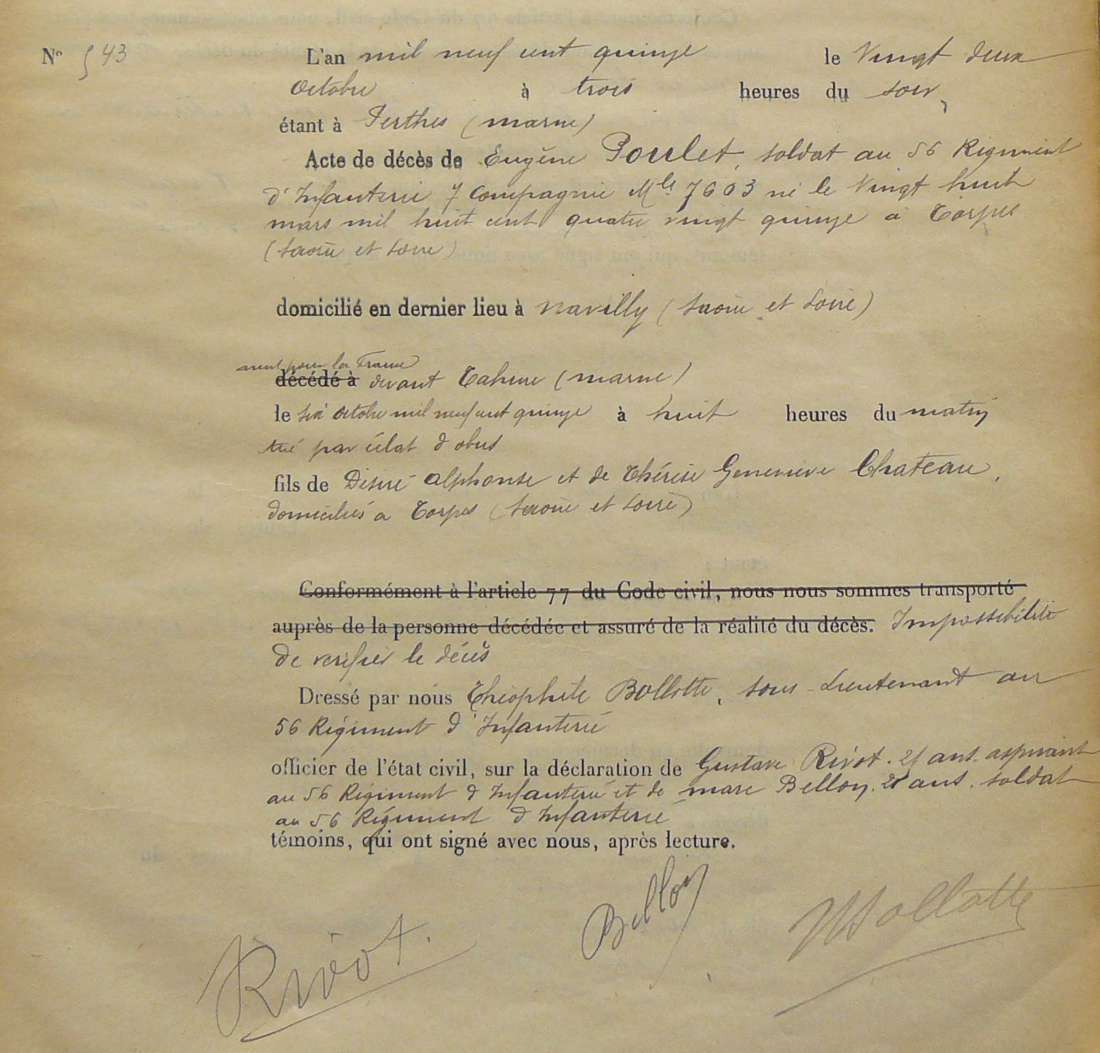 N° 543 L'an mil neuf cent quinze le Vingt deux
Octobre à trois heures du soir,
étant à Perthes (marne)
Acte de décès de Eugène Poulet, soldat au 56 Régiment
d'Infanterie 7 Compagnie Mle 7603 né le Vingt huit
mars mil huit cent quatre vingt quinze à Torpes
(Saône et Loire)
domicilié en dernier lieu à Navilly (Saône et Loire)
mort pour la France
décédé à devant Tahure (marne)
le six Octobre mil neuf cent quinze à huit heures du matin
tué par éclat d'obus
fils de Désiré Alphonse et de Thérèse Geneviève Chateau,
domiciliés à Torpes (Saône et Loire)
Conformément à l'article 77 du Code civil, nous nous sommes transporté
auprès de la personne décédée et assuré de la réalité du décès. Impossibilité
de vérifier le décès
Dressé par nous Théophile Bollotte, sous-Lieutenant au
56 Régiment d'Infanterie
officier de l'état civil, sur la déclaration de Gustave Rivot. 21 ans. aspirant
au 56 Régiment d'Infanterie et de marc Belloy. ans. soldat
au 56 Régiment d'Infanterie
témoins, qui ont signé avec nous, après lecture.
Belloy
Bollotte
Rivot.